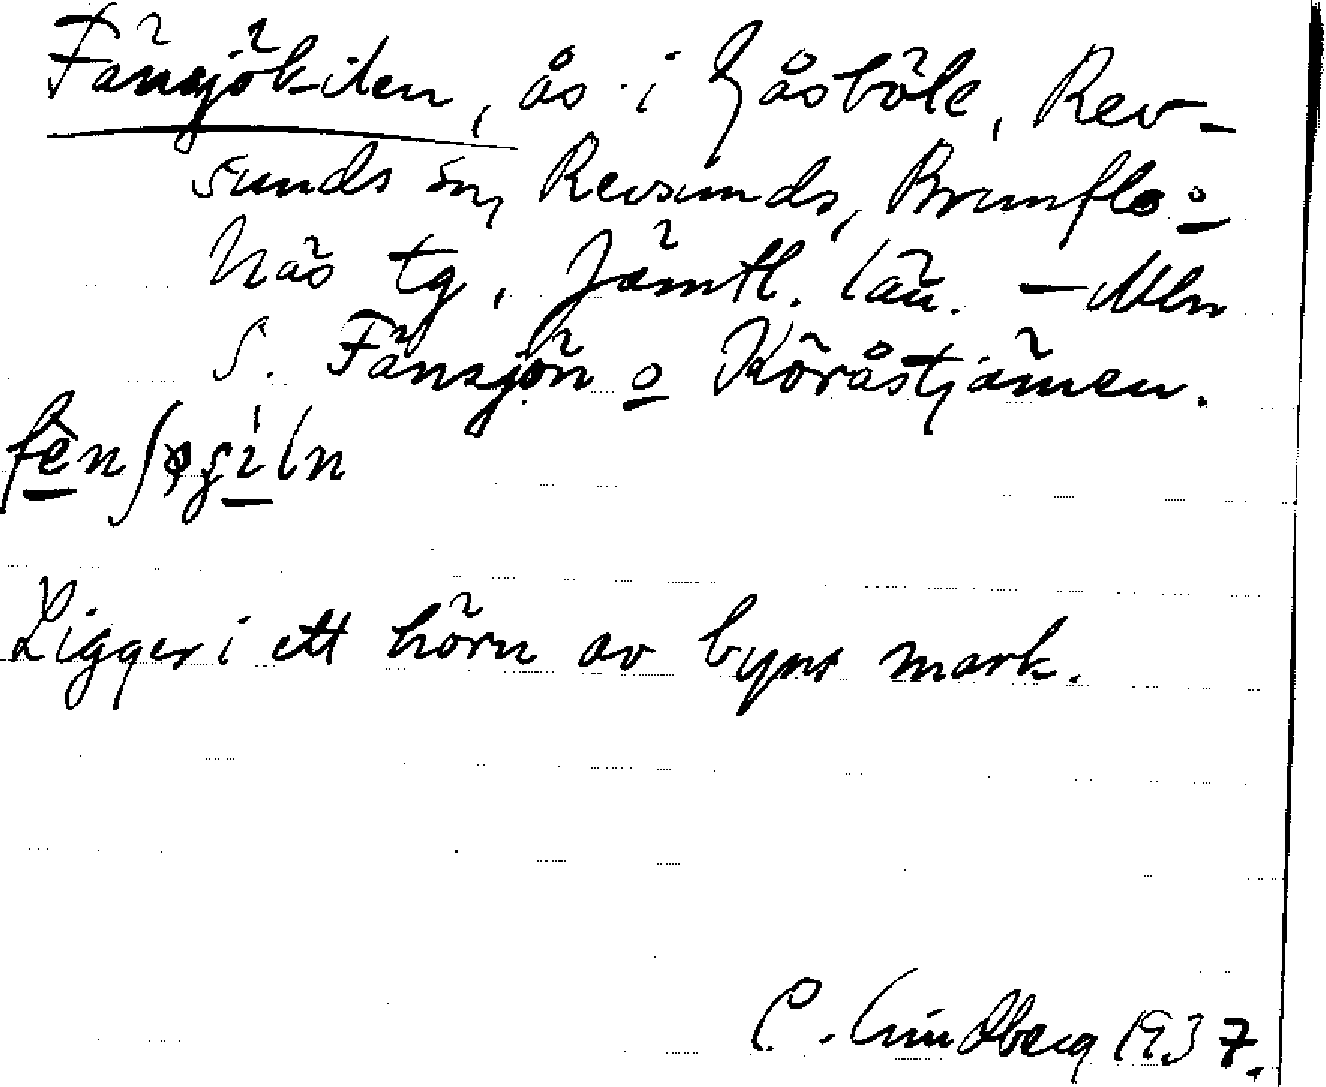 Fänsjökilen, ås i Gåsböle, Rev-
sunds sn, Revsunds, Brunflo o
Näs tg, Jämtl. län. — Mln
S. Fänsjön o Köråstjärnen.
Ligger i ett hörn av byns mark.
C. Lindberg 1937.